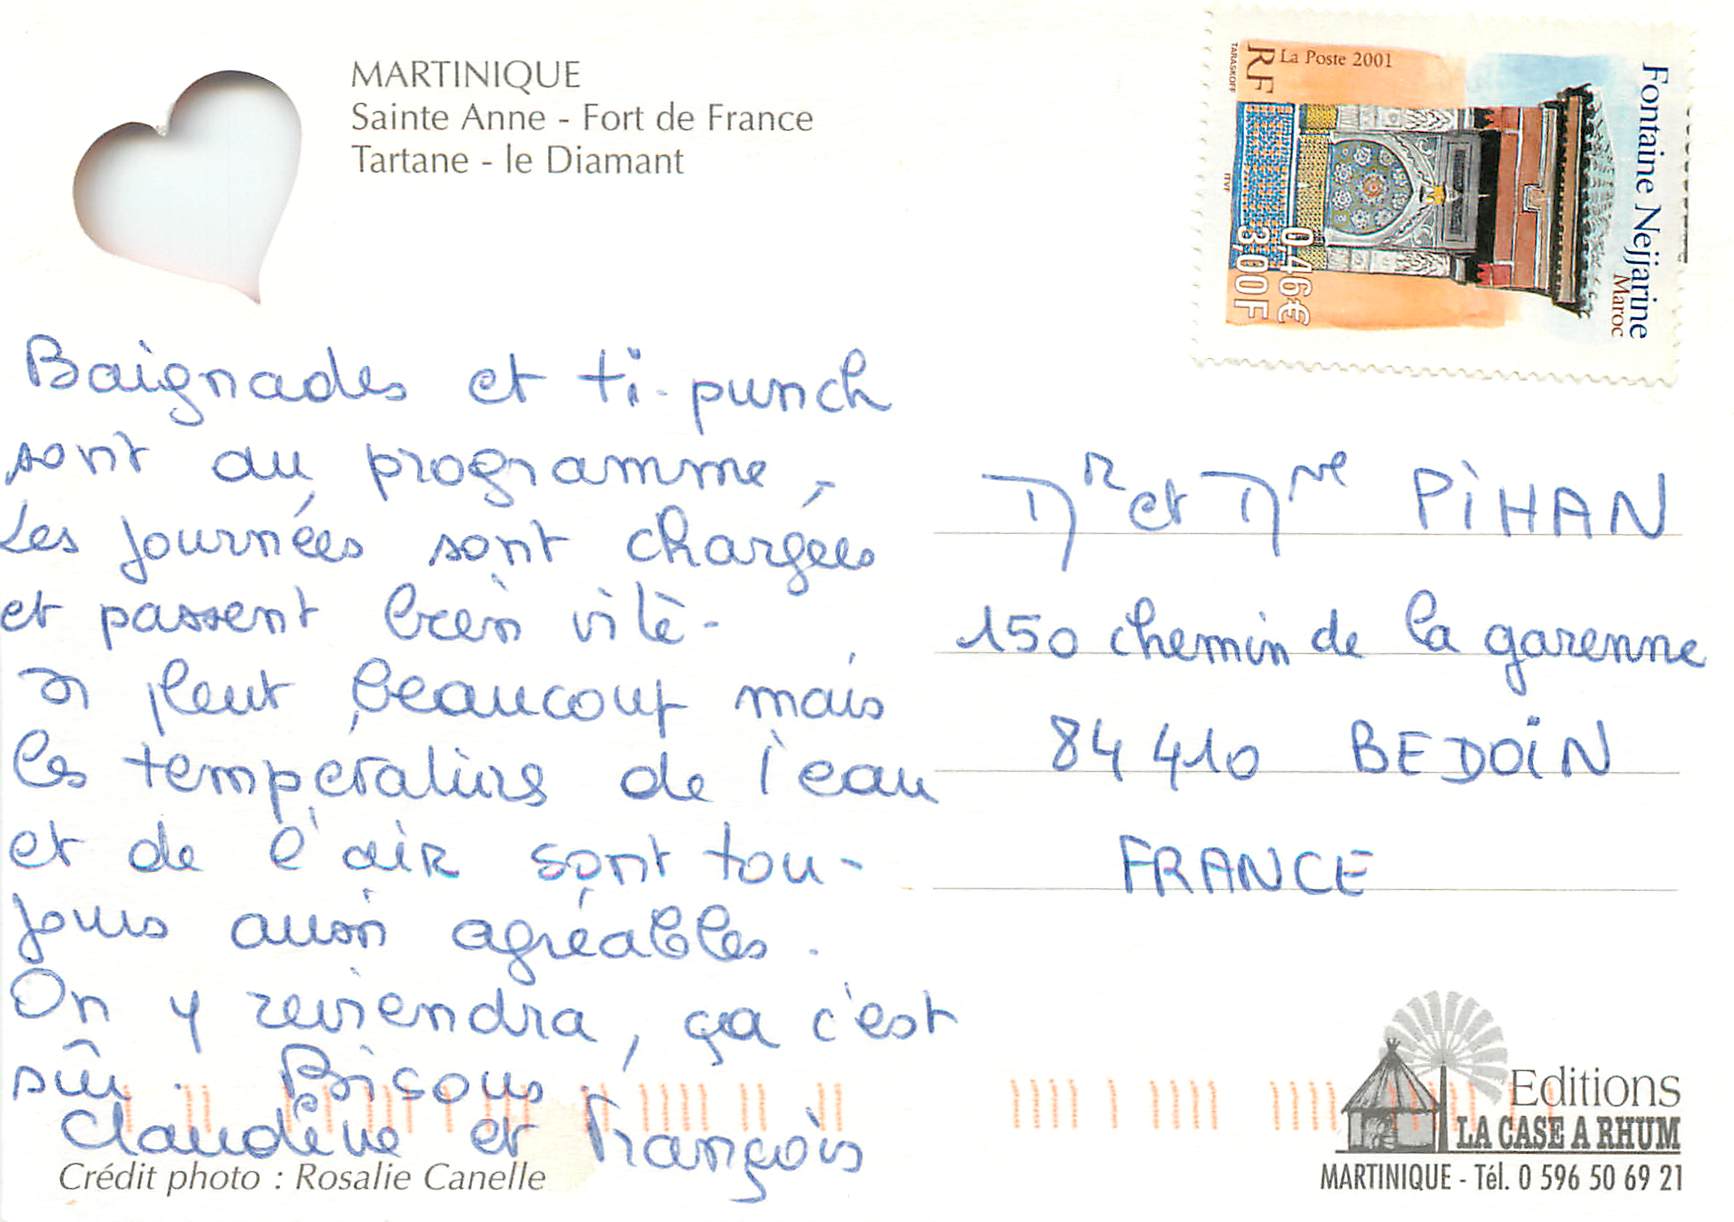 MARTINIQUE
Sainte Anne - Fort de France
Tartane - le Diamant
La Poste 2001
RF
TARASKOFF
ITVF
0,46€
3,00F
Fontaine Nejjarine
Maroc
Baignades et ti-punch
sont au programme,
Les journées sont chargées
et passent bien vite -
Il pleut beaucoup mais
les températures de l'eau
et de l'air sont tou-
jours aussi agréables.
On y reviendra, ça c'est
sûr. Bisous.
Claudine et François
Mr et Mme PiHAN
150 chemin de la garenne
84 410 BEDOiN
FRANCE
Crédit photo : Rosalie Canelle
Editions
LA CASE A RHUM
MARTINIQUE - Tél. 0 596 50 69 21